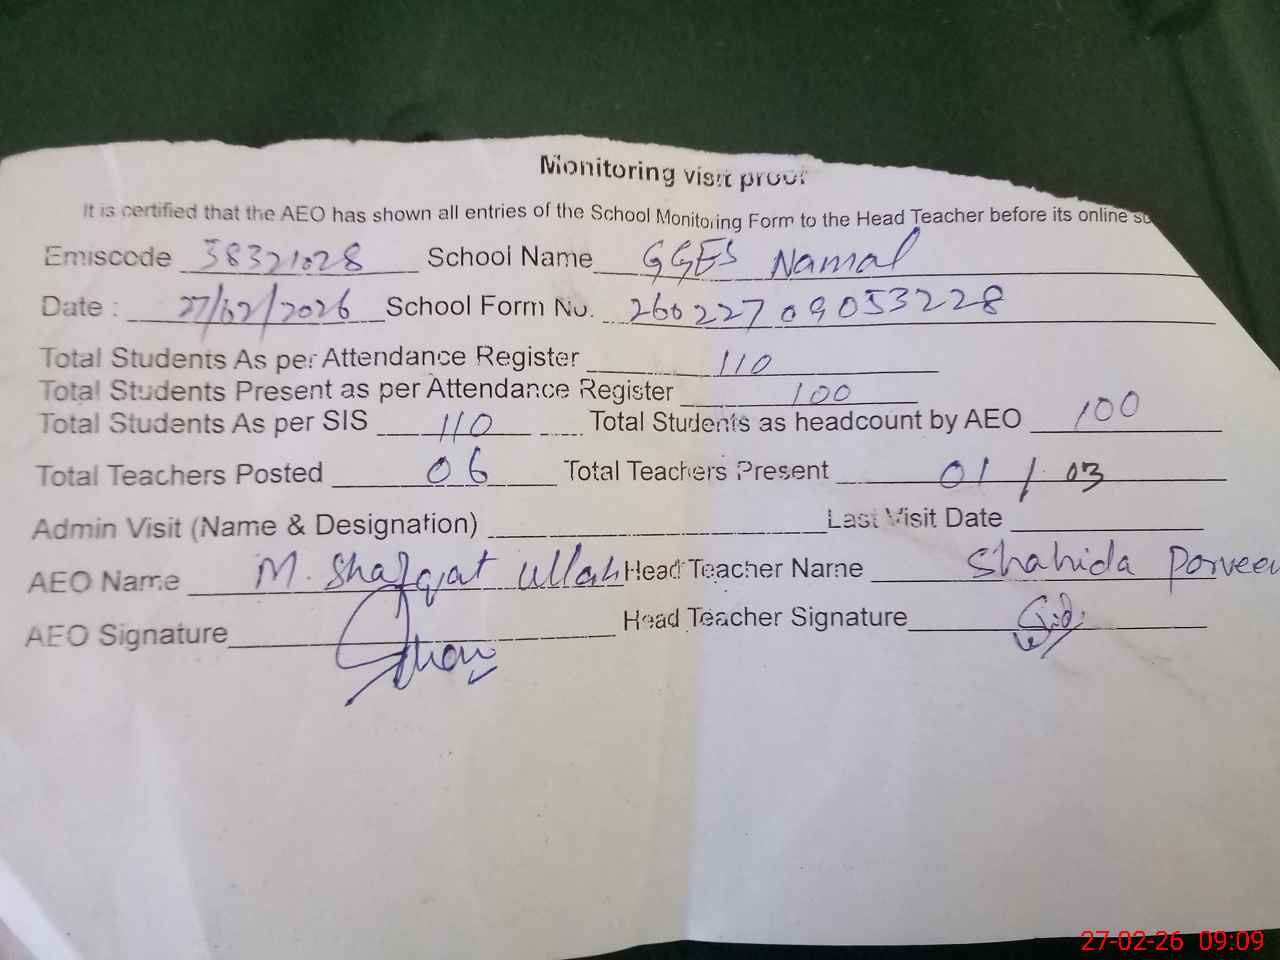 Monitoring visit proof
It is certified that the AEO has shown all entries of the School Monitoring Form to the Head Teacher before its online
Emiscode 38321028 School Name GGES Namal
Date : 27/02/2026 School Form No. 26022709053228
Total Students As per Attendance Register 110
Total Students Present as per Attendance Register 100
Total Students As per SIS 110 Total Students as headcount by AEO 100
Total Teachers Posted 06 Total Teachers Present 01 / 03
Admin Visit (Name & Designation) Last Visit Date
AEO Name M. Shafqat Ullah Head Teacher Name Shahida Parveen
AEO Signature Head Teacher Signature
27-02-26 09:09